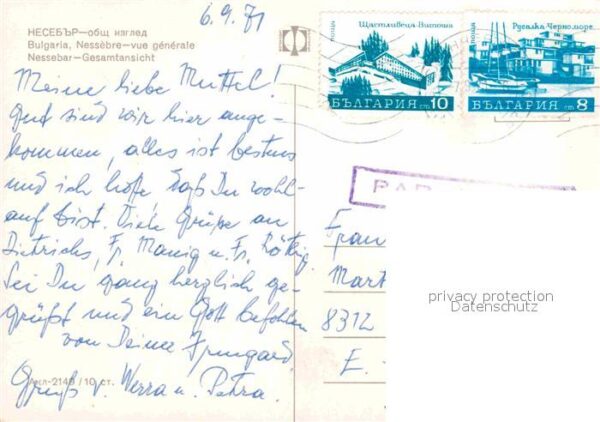 6.9.71
НЕСЕБЪР—общ изглед
Bulgaria, Nessèbre—vue générale
Nessebar—Gesamtansicht
Meine liebe Muttel!
Gut sind wir hier ange-
kommen, alles ist bestens
und ich hoffe daß Du wohl-
auf bist. Viele Grüße an
Dietrichs, Fr. Manig u. Fr.
Sei Du ganz herzlich ge-
grüßt und ein Gott befohlen
von Deiner Irmgard.
Gruß v. Werra u. Petra.
Акл-2149 / 10 ст.
ПОЩА
Щастливеца-Витоша
БЪЛГАРИЯ ст 10
ПОЩА
Русалка-Черноморе
БЪЛГАРИЯ ст 8
PAR
Frau
Mart
8312
E.
privacy protection
Datenschutz